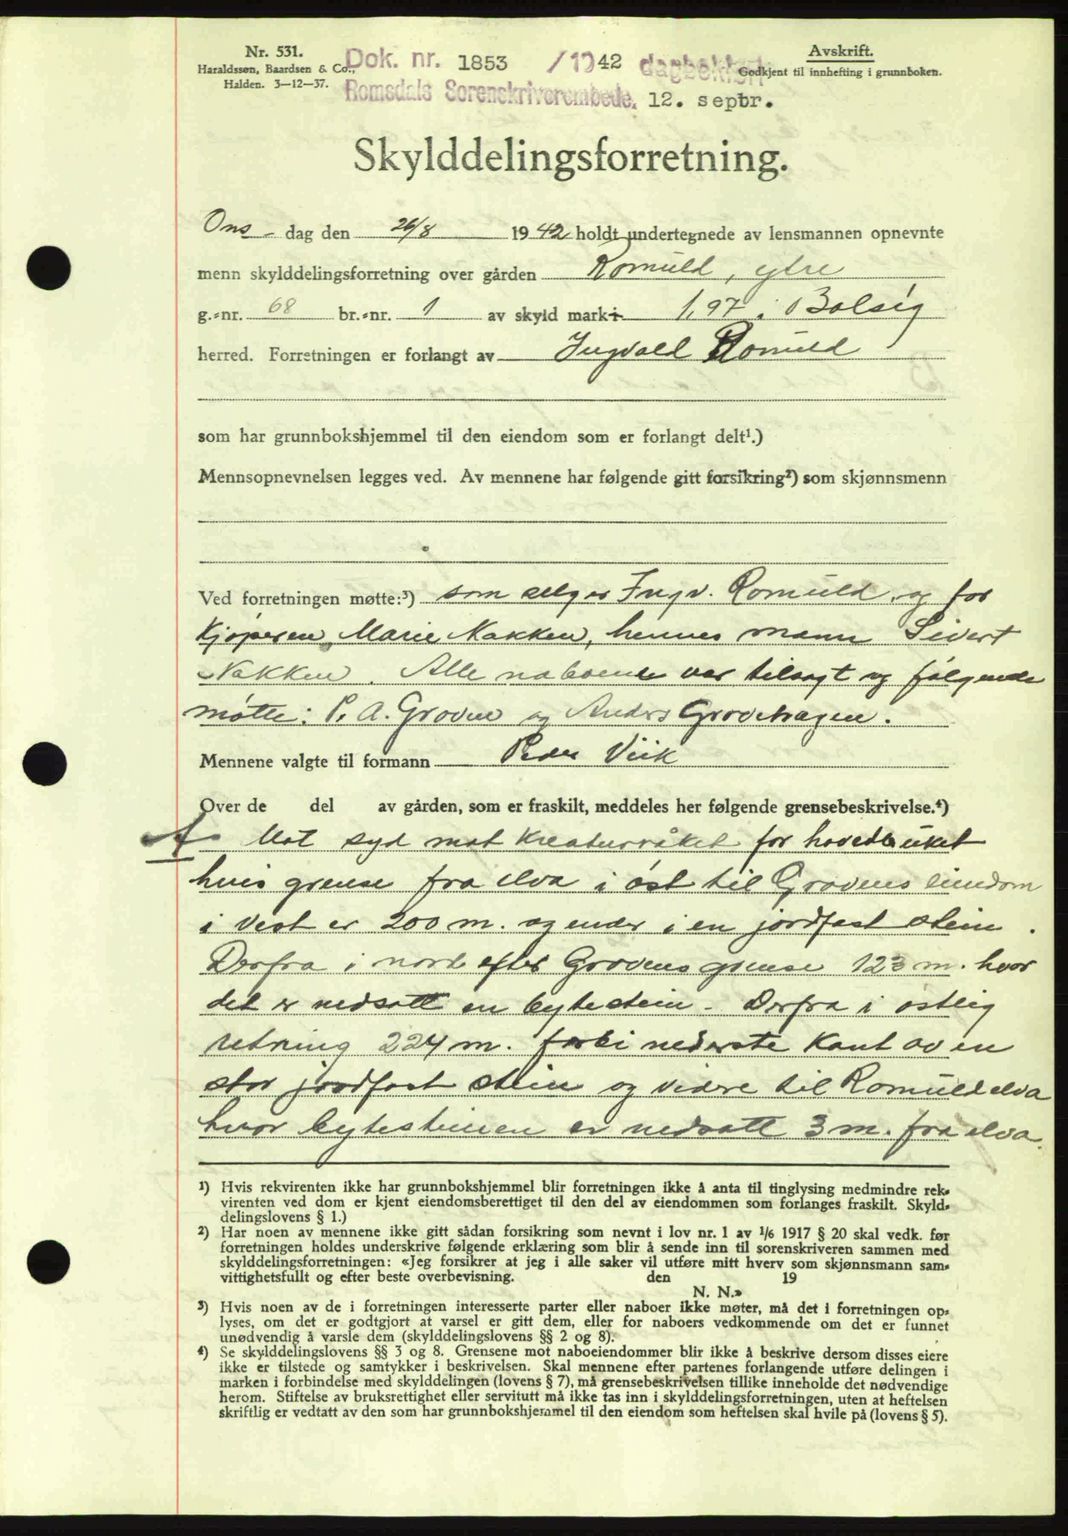 Nr. 531.
Haraldssøn, Baardsen & Co.,
Halden. 3—12—37.
Dok. nr. 1853 /1942 dagbokført
Romsdals Sorenskriverembede. 12. septbr.
Avskrift.
Godkjent til innhefting i grunnboken.
Skylddelingsforretning.
Ons- dag den 26/8 1942 holdt undertegnede av lensmannen opnevnte
menn skylddelingsforretning over gården Romuld, ytre
g.-nr. 68 br.-nr. 1 av skyld mark 1,97 i Bolsøy
herred. Forretningen er forlangt av Ingvald Romuld
som har grunnbokshjemmel til den eiendom som er forlangt delt¹.)
Mennsopnevnelsen legges ved. Av mennene har følgende gitt forsikring²) som skjønnsmenn
Ved forretningen møtte:³) som selger Ingv. Romuld, og for
Kjøperen Marie Nakken, hennes mann Sivert
Nakken. Alle naboene var tilsagt og følgende
møtte: P. A. Groven og Anders Grovehagen.
Mennene valgte til formann Peder Viik
Over de del av gården, som er fraskilt, meddeles her følgende grensebeskrivelse.⁴)
A Mot syd mot kreaturråket for hovedbruket
hvis grense fra elva i øst til Grovens eiendom
i vest er 200 m. og ender i en jordfast stein.
Derfra i nord efter Grovens grense 123 m. hvor
det er nedsatt en bytestein. Derfra i østlig
retning 224 m. forbi nederste kant av en
stor jordfast stein og videre til Romuldelva
hvor bytesteinen er nedsatt 3 m. fra elva.
¹) Hvis rekvirenten ikke har grunnbokshjemmel blir forretningen ikke å anta til tinglysing medmindre rek-
virenten ved dom er kjent eiendomsberettiget til den del av eiendommen som forlanges fraskilt. Skyld-
delingslovens § 1.)
²) Har noen av mennene ikke gitt sådan forsikring som nevnt i lov nr. 1 av 1/6 1917 § 20 skal vedk. før
forretningen holdes underskrive følgende erklæring som blir å sende inn til sorenskriveren sammen med
skylddelingsforretningen: «Jeg forsikrer at jeg i alle saker vil utføre mitt hverv som skjønnsmann sam-
vittighetsfullt og efter beste overbevisning. den 19
N. N.»
³) Hvis noen av de i forretningen interesserte parter eller naboer ikke møter, må det i forretningen op-
lyses, om det er godtgjort at varsel er gitt dem, eller for naboers vedkommende om det er funnet
unødvendig å varsle dem (skylddelingslovens §§ 2 og 8).
⁴) Se skylddelingslovens §§ 3 og 8. Grensene mot naboeiendommer blir ikke å beskrive dersom disses eiere
ikke er tilstede og samtykker i beskrivelsen. Skal mennene efter partenes forlangende utføre delingen i
marken i forbindelse med skylddelingen (lovens § 7), må grensebeskrivelsen tillike inneholde det nødvendige
herom. Stiftelse av bruksrettighet eller servitutt må ikke tas inn i skylddelingsforretningen, uten at heftelsen
skriftlig er vedtatt av den som har grunnbokshjemmel til den eiendom som heftelsen skal hvile på (lovens § 5).